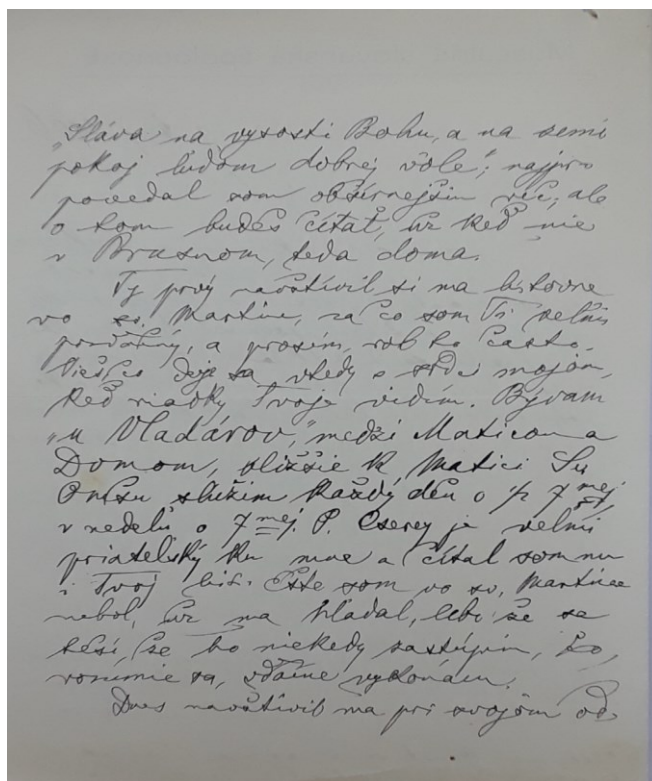 „Sláva na vysosti Bohu, a na zemi
pokoj ľuďom dobrej vôle“; najpro
povedal som obšírnejším viac, ale
o tom budeš čítať, už keď nie
v Brusnom, teda doma.
Ty prvý navštívil si ma listovne
vo sv. Martine, za čo som Ti veľmi
povďačný, a prosím, rob to často.
deje sa vtedy v srdci mojom,
keď riadky Tvoje vidím. Bývam
„u Vladárov,“ medzi Maticou a
Domom, bližšie k Matici Sv
Omšu slúžim každý deň o ½ 7 mej
v nedeľu o 7 mej. P. Cserey je veľmi
priateľský ku mne a čítal som mu
i Tvoj list. Ešte som vo sv. Martine
nebol, už ma hľadal, lebo že sa
teší, že ho niekedy zastúpim, čo,
rozumie sa, vďačne vykonám.
Dnes navštívil ma pri svojom od